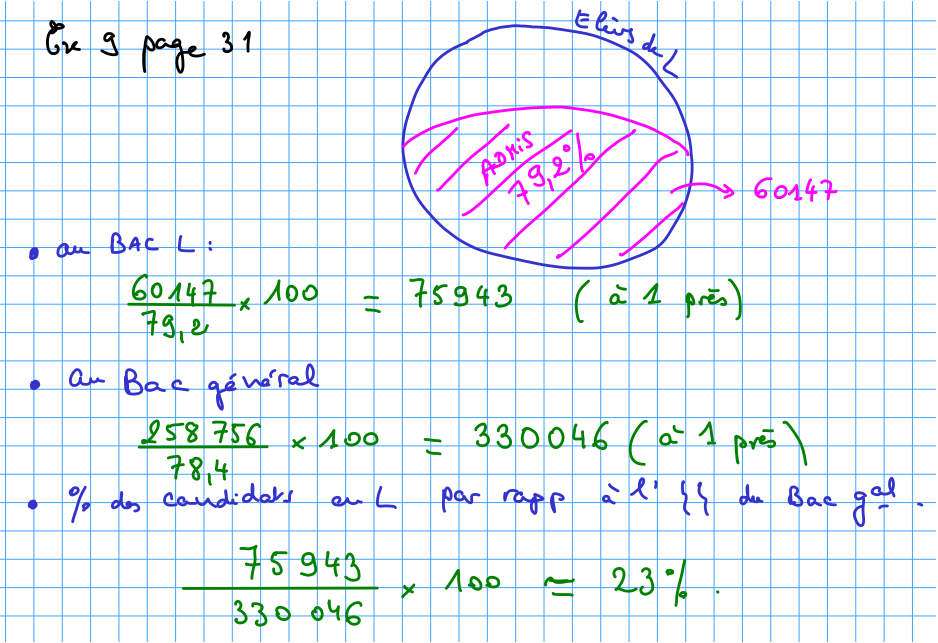 Ex 9 page 31
Elèves de L
ADMIS
79,2%
→ 60147
• au BAC L :
60147 / 79,2 × 100 = 75943 (à 1 près)
• au Bac général
258 756 / 78,4 × 100 = 330046 (à 1 près)
• % des candidats en L par rapp à l' {{ du Bac gal.
75943 / 330 046 × 100 ≃ 23%.